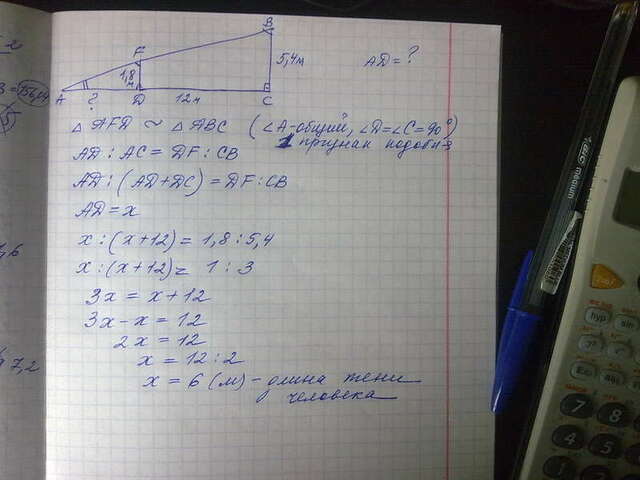 B
F
5,4м
AD = ?
1,8
м
A
?
D
12м
C
△ AFD ~ △ ABC (∠A-общий, ∠D=∠C=90°)
1 признак подоби-я
AD : AC = DF : CB
AD : (AD+DC) = DF : CB
AD = x
x : (x+12) = 1,8 : 5,4
x : (x+12) = 1 : 3
3x = x + 12
3x - x = 12
2x = 12
x = 12 : 2
x = 6 (м) - длина тени
человека
7,2
medium
hyp
sin
7
8
4
5
1
2